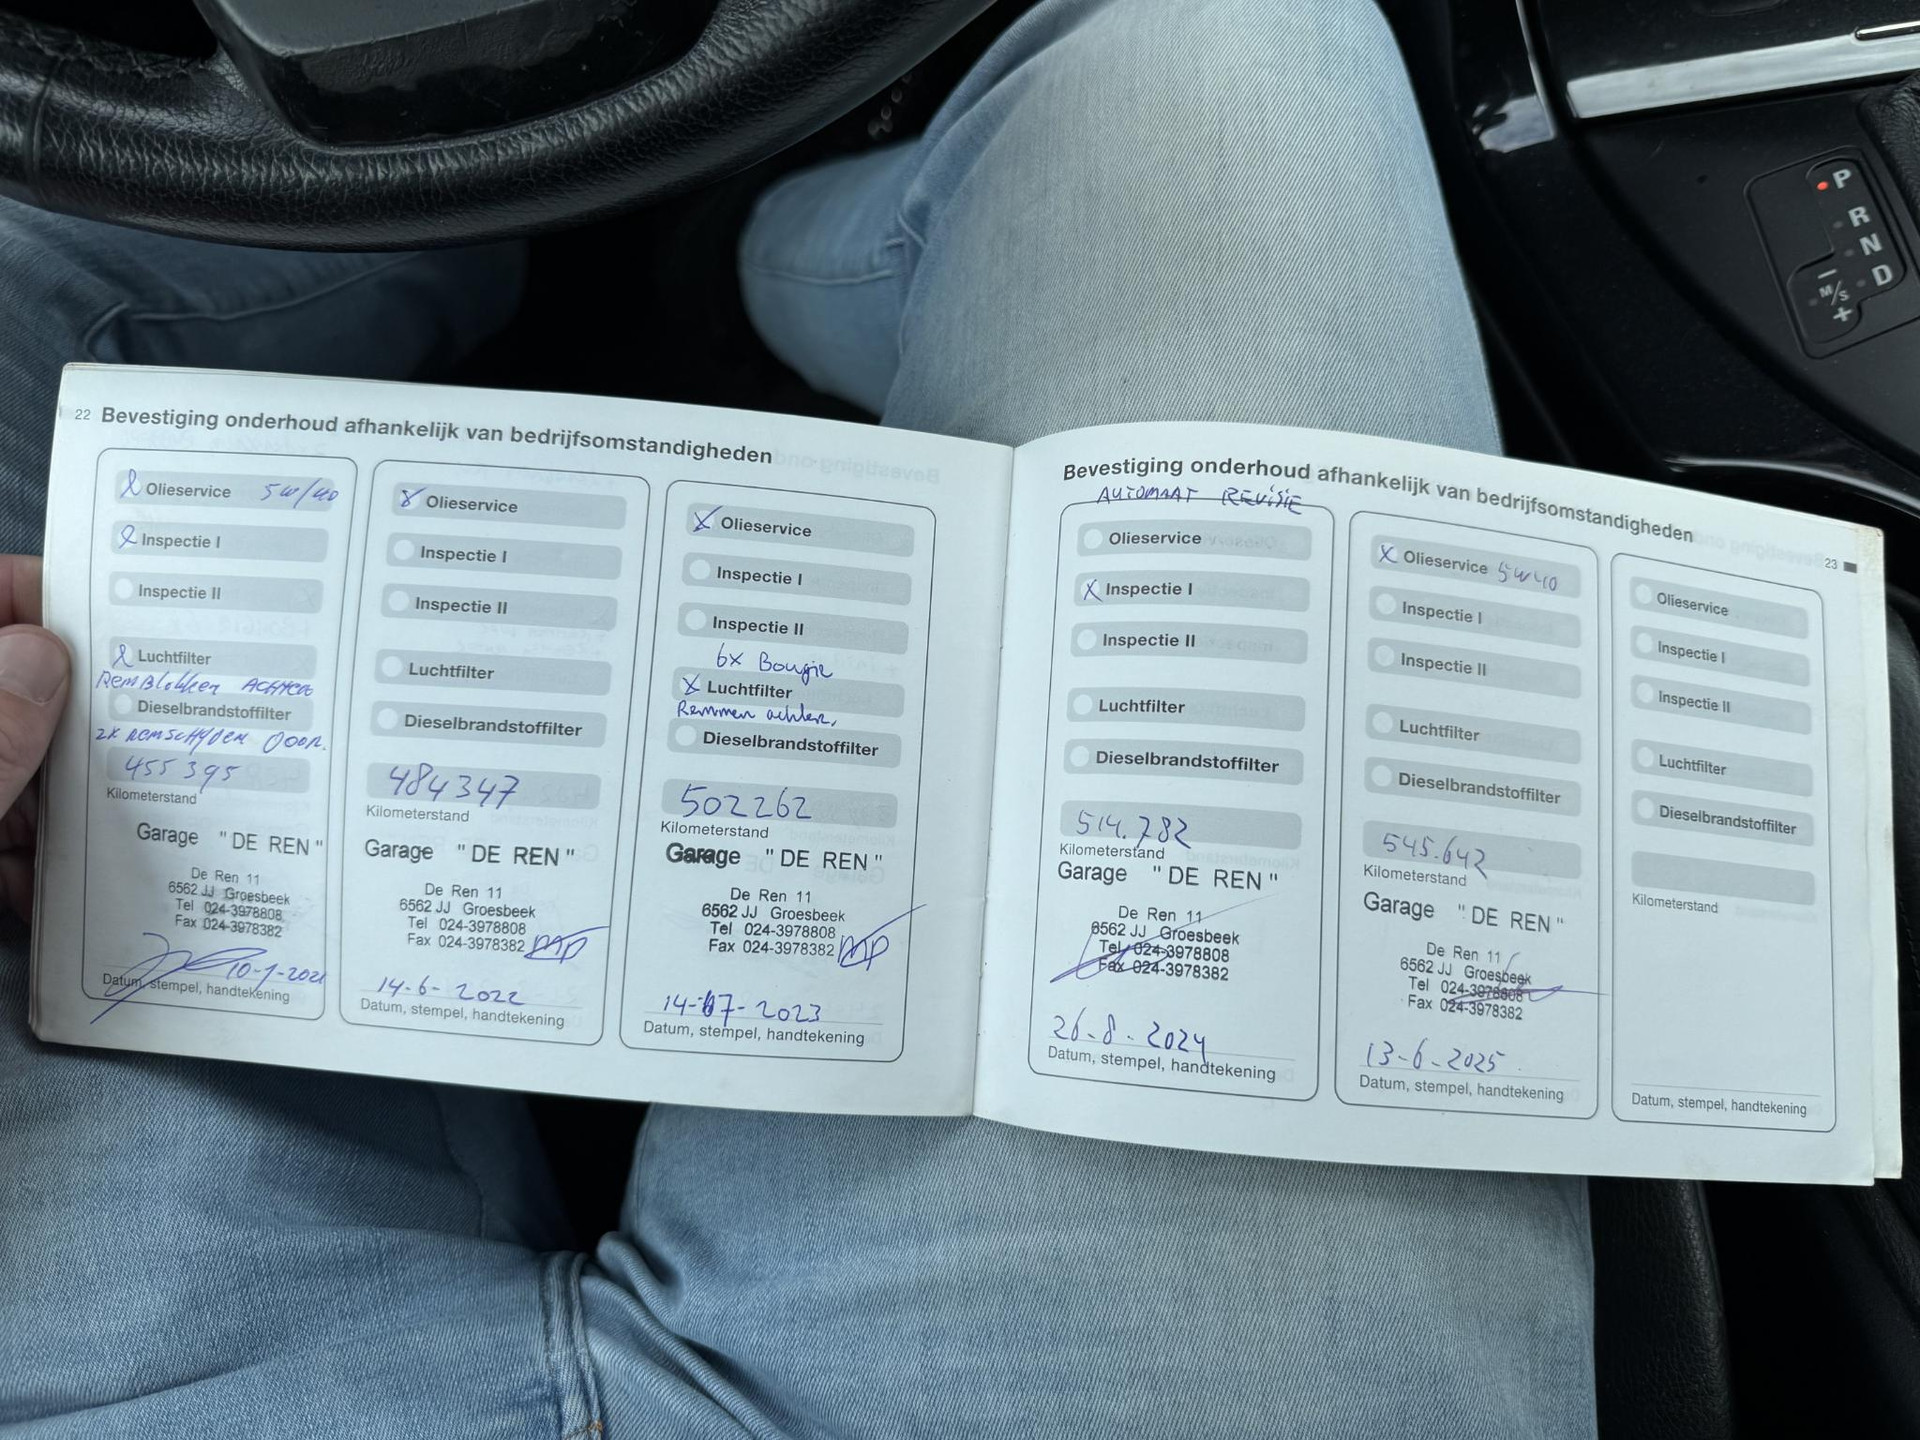 22 Bevestiging onderhoud afhankelijk van bedrijfsomstandigheden
Olieservice 5W/40
Inspectie I
Inspectie II
Luchtfilter
Remblokken ACHTER
Dieselbrandstoffilter
2x REMSCHYVEN VOOR.
455395
Kilometerstand
Garage "DE REN"
De Ren 11
6562 JJ Groesbeek
Tel 024-3978808
Fax 024-3978382
Datum, stempel, handtekening
X Olieservice
Inspectie I
Inspectie II
Luchtfilter
Dieselbrandstoffilter
484347
Kilometerstand
Garage "DE REN"
De Ren 11
6562 JJ Groesbeek
Tel 024-3978808
Fax 024-3978382
14-6-2022
Datum, stempel, handtekening
X Olieservice
Inspectie I
Inspectie II
6x Bougie
X Luchtfilter
Remmen achter.
Dieselbrandstoffilter
502262
Kilometerstand
Garage "DE REN"
De Ren 11
6562 JJ Groesbeek
Tel 024-3978808
Fax 024-3978382
14-07-2023
Datum, stempel, handtekening
Bevestiging onderhoud afhankelijk van bedrijfsomstandigheden
23
AUTOMAAT REVISIE
Olieservice
X Inspectie I
Inspectie II
Luchtfilter
Dieselbrandstoffilter
514.782
Kilometerstand
Garage "DE REN"
De Ren 11
6562 JJ Groesbeek
Tel 024-3978808
Fax 024-3978382
26-8-2024
Datum, stempel, handtekening
X Olieservice 5W40
Inspectie I
Inspectie II
Luchtfilter
Dieselbrandstoffilter
545.642
Kilometerstand
Garage "DE REN"
De Ren 11
6562 JJ Groesbeek
Tel 024-3978808
Fax 024-3978382
13-6-2025
Datum, stempel, handtekening
Olieservice
Inspectie I
Inspectie II
Luchtfilter
Dieselbrandstoffilter
Kilometerstand
Datum, stempel, handtekening
P
R
N
D
−
M/S
+